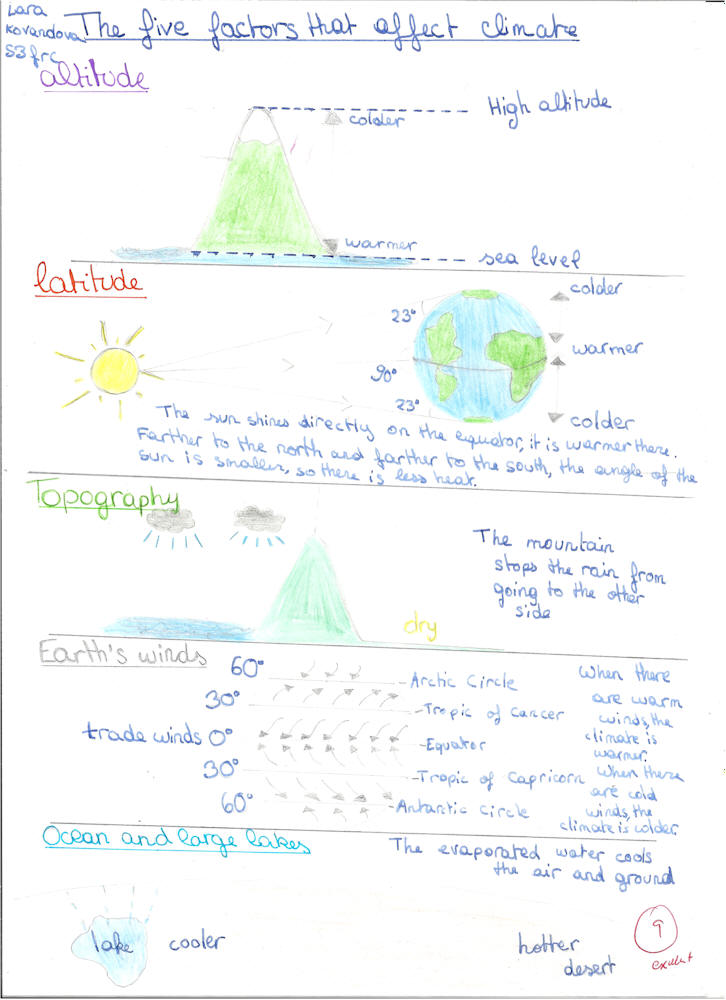 Lara
Kovandova
S3frc
The five factors that affect climate
altitude
High altitude
colder
warmer
sea level
latitude
colder
23°
warmer
90°
23°
colder
The sun shines directly on the equator, it is warmer there.
Farther to the north and farther to the south, the angle of the
sun is smaller, so there is less heat.
Topography
The mountain
stops the rain from
going to the other
side
dry
Earth's winds
60°
Arctic Circle
30°
Tropic of Cancer
trade winds 0°
Equator
30°
Tropic of Capricorn
60°
Antantic Circle
When there
are warm
winds, the
climate is
warmer.
When there
are cold
winds, the
climate is colder.
Ocean and large lakes
The evaporated water cools
the air and ground
lake
cooler
hotter
desert
9